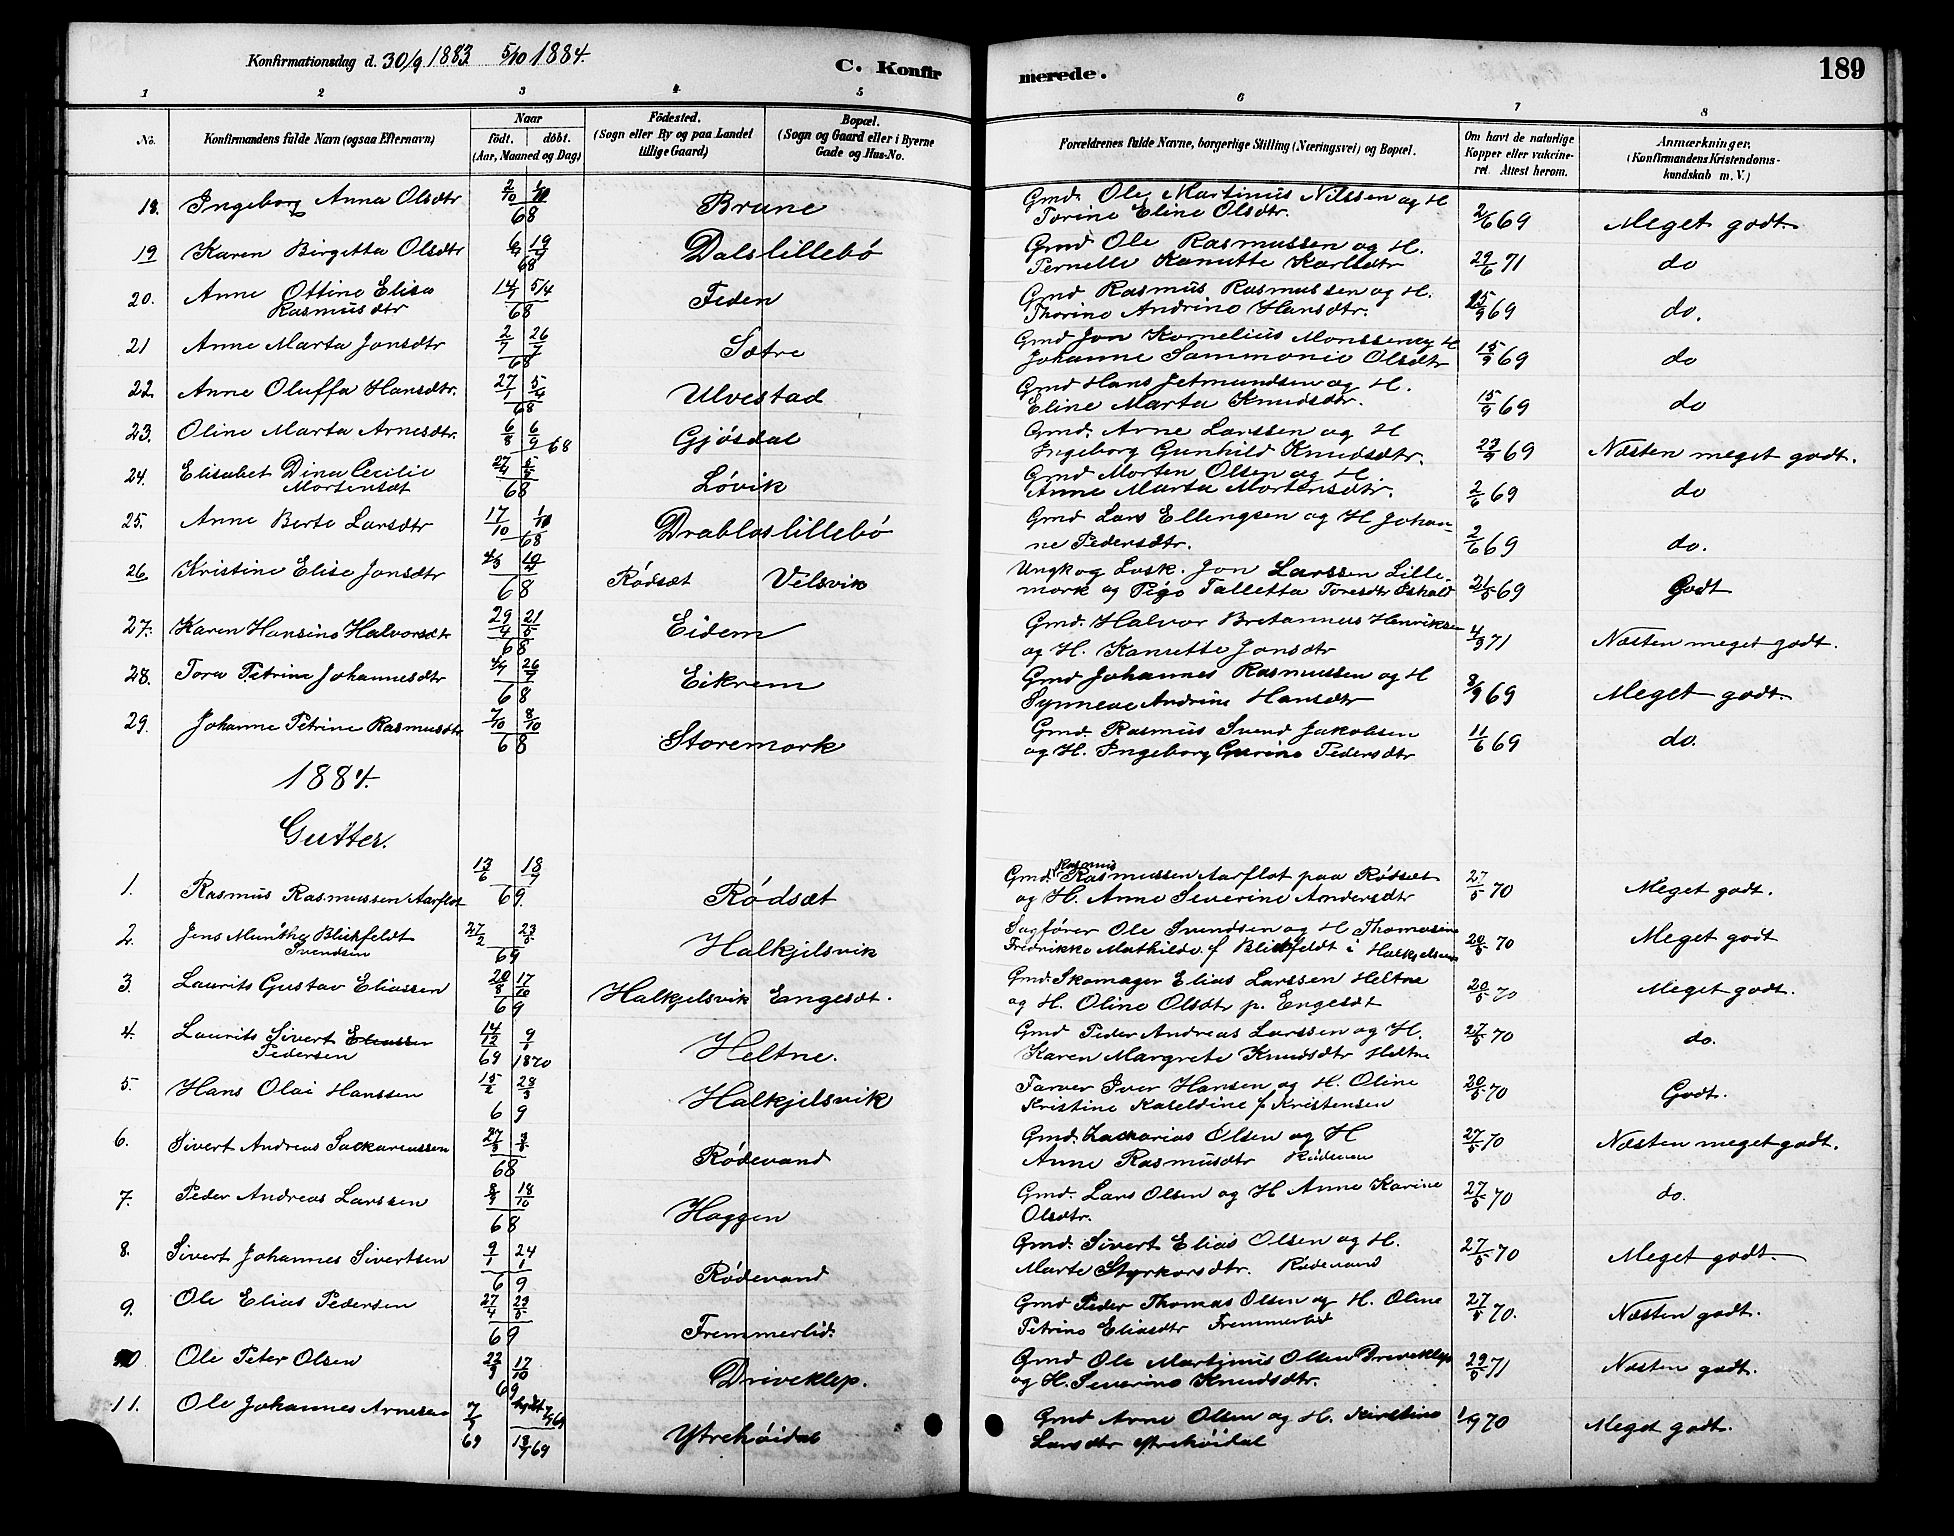 Konfirmationsdag d. 30/9 1883 5/10 1884.
C. Konfirmerede.
189
1 2 3 4 5 6 7 8
No.
Konfirmandens fulde Navn (ogsaa Efternavn)
Naar
født. døbt.
(Aar, Maaned og Dag)
Fødested.
(Sogn eller By og paa Landet
tillige Gaard)
Bopæl.
(Sogn og Gaard eller i Byerne
Gade og Hus-No.
Forældrenes fulde Navne, borgerlige Stilling (Næringsvei) og Bopæl.
Om havt de naturlige
Kopper eller vakcine-
ret. Attest herom.
Anmærkninger.
(Konfirmandens Kristendoms-
kundskab m. V.)
18. Ingeborg Anna Olsdtr 2/10 1/11 68 Brune Gmd. Ole Martinus Nilssen og H Torine Eline Olsdtr. 2/6 69 Meget godt.
19 Karen Birgetta Olsdtr 19/4 68 Dalslillebø Gmd Ole Rasmussen og H. Pernelle Kanutte Karlsdtr 29/6 71 do
20. Anne Ottine Elisa Rasmusdtr 5/4 68 Feden Gmd Rasmus Rasmussen og H. Thorine Andrine Hansdtr. 15/9 69 do.
21 Anne Marta Jonsdtr 2/7 26/7 68 Sætre Gmd Jon Kornelius Monssen og H Johanne Sammonie Olsdtr 15/9 69 do
22. Anne Oluffa Hansdtr. 27/1 5/4 68 Ulvestad Gmd Hans Jetmundsen og H. Eline Marta Knudsdtr. 15/9 69 do
23. Oline Marta Arnesdtr. 6/8 6/9 68 Gjøsdal Gmd. Arne Larssen og H Ingeborg Gunhild Knudsdtr. 23/9 69 Næsten meget godt.
24. Elisabet Dina Cecilie Mortensdt 27/4 5/5 68 Løvik Gmd Morten Olsen og H Anne Marta Mortensdtr. 2/6 69 do
25. Anne Berte Larsdtr 17/10 1/11 68 Drabloslillebø Gmd Lars Ellengsen og H Johan- ne Pedersdtr. 2/6 69 do.
26 Kristine Elise Jonsdtr 4/3 68 Rødsæt Velsvik Ungk og Losk. Jon Larssen Lille- mork og Pige Talletta Toresdtr 21/5 69 Godt
27. Karen Hansine Halvorsdtr 29/4 21/5 68 Eidem Gmd. Halvor Bretannus Henriksen og H. Kanutte Jonsdtr 4/3 71 Næsten meget godt.
28. Tora Petrine Johannesdtr 26/7 68 Eikrem Gmd Johannes Rasmussen og H Synneve Andrine Hansdtr 8/9 69 Meget godt.
29. Johanne Petrine Rasmusdtr 7/10 8/10 68 Storemork Gmd. Rasmus Svend Jakobsen og H. Ingeborg Gurine Pedersdtr 11/6 69 do.
1884.
Gutter.
1. Rasmus Rasmussen Aarflot 13/6 18/7 69. Rødsæt Gmd. Rasmus Rasmussen Aarflot paa Rødsæt og H. Anne Severine Andersdtr 27/5 70 Meget godt.
2. Jens Munthe Blickfeldt Svendsen 27/2 23/5 69 Halkjelsvik Sagfører Ole Svendsen og H Thomasine Fredrikke Mathilde f Blickfeldt i Halkjelsvik 20/5 70 Meget godt
3. Laurits Gustav Eliassen 20/8 17/10 69 Halkjelsvik Engesæt. Gmd. Skomager Elias Larssen Heltne og H. Oline Olsdtr p. Engesæt 20/5 70 Meget godt.
4. Laurits Sivert Eliassen Pedersen 14/12 69 9/1 1870 Heltne. Gmd Peder Andreas Larssen og H. Karen Margrete Knudsdtr Heltne 27/5 70 do.
5. Hans Olai Hanssen 15/2 28/3 69 Halkjelsvik Farver Iver Hansen og H. Oline Kristine Kaseldine f Kristensen 20/5 70 Godt.
6. Sivert Andreas Sackariassen 27/3 68 Rødevand Gmd. Zackarias Olsen og H Anne Rasmusdtr 27/5 70 Næsten meget godt.
7. Peder Andreas Larssen 18/10 68 Haggen Gmd. Lars Olsen og H Anne Karine Olsdtr. 27/5 70 do.
8. Sivert Johannes Sivertsen 9/1 24/1 69 Rødevand Gmd. Sivert Elias Olsen og H. Marte Styrkorsdtr. Rødevand 27/5 70 Meget godt.
9. Ole Elias Pedersen 27/4 23/5 69 Fremmerlid. Gmd Peder Thomas Olsen og H. Oline Petrine Eliasdtr Fremmerlid 27/5 70. Næsten godt.
10 Ole Peter Olsen 22/9 17/10 69 Driveklep. Gmd Ole Martinus Olsen Driveklep og H. Severine Knudsdtr. 29/5 71 Næsten godt.
11. Ole Johannes Arnesen 7/7 69 18/7 69 Ytrehøidal Gmd Arne Olsen og H. Kirstine Larsdtr Ytrehøidal 1/9 70 Meget godt.